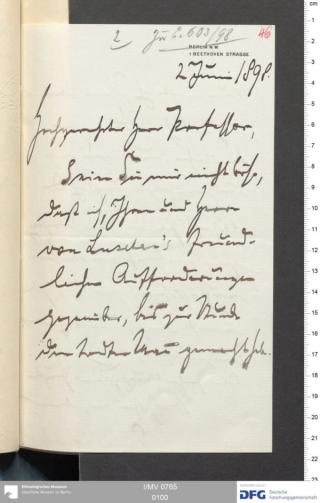 2 Zu E. 603/98 46
BERLIN N.W.
1 BEETHOVEN STRASSE
2 Juni 1898.
Hochgeehrter Herr Professor,
Seien Sie mir nicht böse,
daß ich, Ihren und Herrn
von Luschan's freund-
lichen Aufforderungen
gegenüber, bis zur Stunde
den todten Mann gemacht habe.
Ethnologisches Museum
Staatliche Museen zu Berlin
I/MV 0765
0100
DFG Deutsche
Forschungsgemeinschaft
cm
1
2
3
4
5
6
7
8
9
10
11
12
13
14
15
16
17
18
19
20
21
22
23